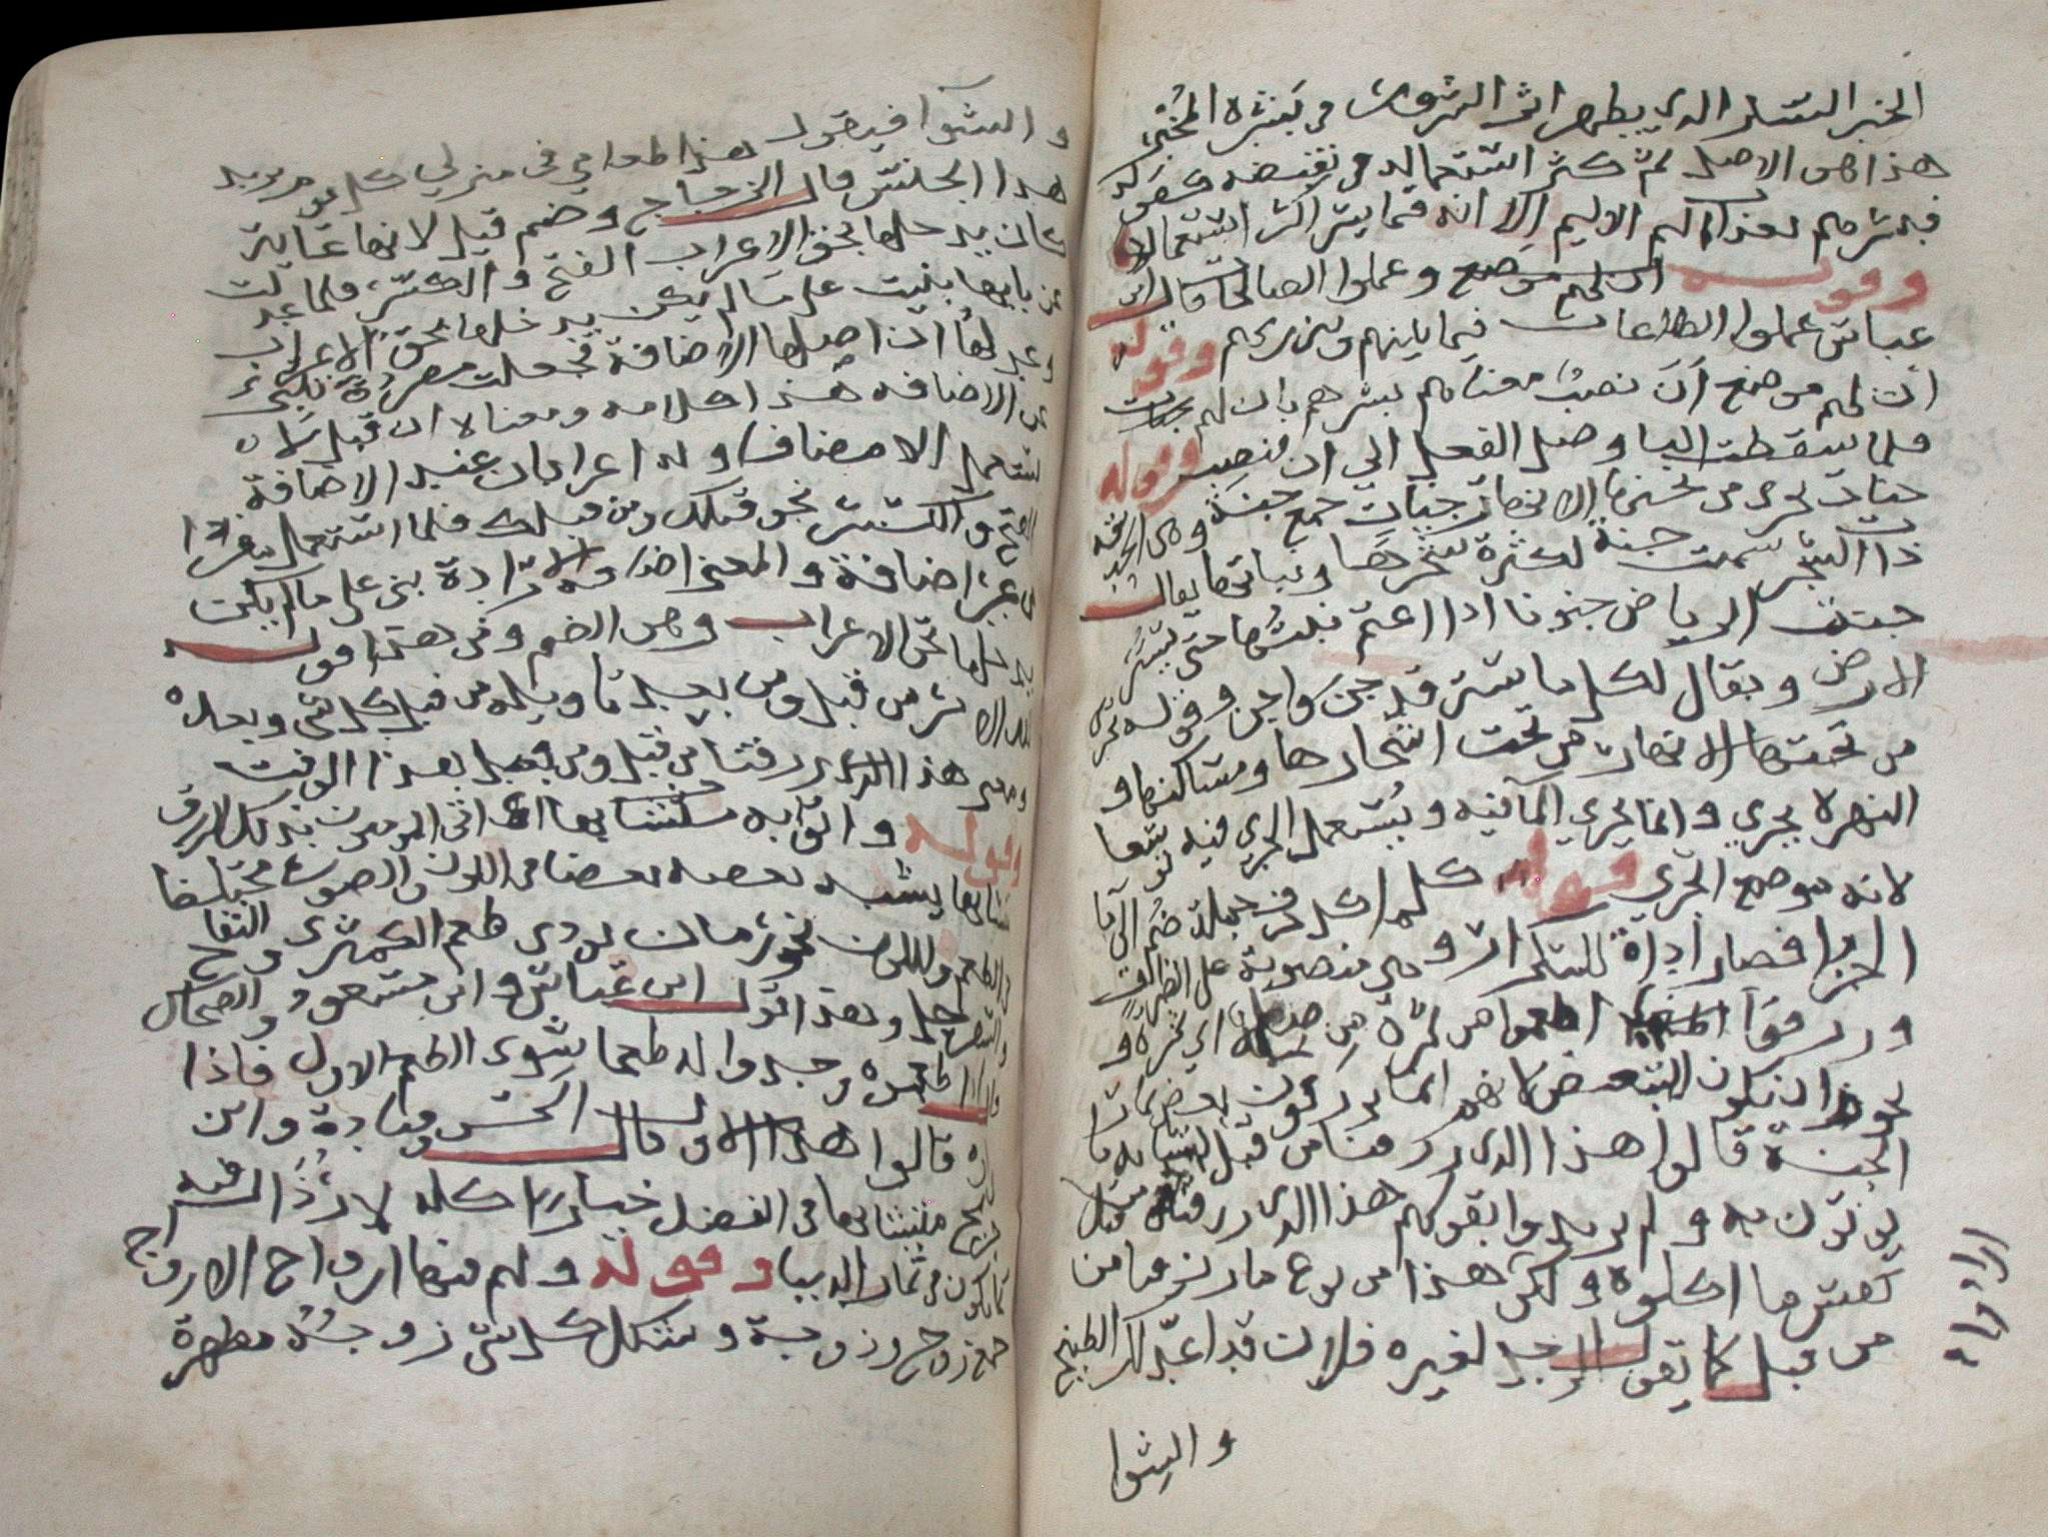 الخبر السار الذي يظهر اثر السرور في بشرة المخبر
هذا هو الاصل ثم كثر استعماله في نقيضه كقوله
فبشرهم بعذاب اليم الا انه فيما يسر اكثر استعمالا
وقوله ان لهم موضع وعملوا الصالحات قال ابن
عباس عملوا الطاعات فيما بينهم وبين ربهم وقوله
ان لهم موضع ان نصب معناه بشرهم بان لهم جنات
فلما سقطت البا وصل الفعل الى ان فنصب وقوله
جنات تجري من تحتها الانهار جنات جمع جنة وهي الحديقة
ذات الشجر سميت جنة لكثرة شجرها ونباتها يقال
جنت الرياض جنونا اذا اعتم نبتها حتى يستر
الارض ويقال لكل ما ستر قد جن واجن وقوله تجري
من تحتها الانهار من تحت اشجارها ومساكنها و
النهر لا يجري وانما يجري الما فيه ويستعمل الجري فيه توسعا
لانه موضع الجري قوله كلما كل حرف جملة ضم الى ما
الجزا فصار اداة للتكرار وهي منصوبة على الظرف
ورزقوا اطعموا من ثمرة من صلة اي ثمرة و
يجوز ان يكون للتبعيض لانهم انما يرزقون بعض ثمار
الجنة قالوا هذا الذي رزقنا من قبل لتشابه ما
يوتون به ولم يريدوا بقولهم هذا الذي رزقنا من قبل
نفس ما اكلوه ولكن هذا من نوع ما رزقنا من
من قبل كما يقول الرجل لغيره فلان قد اعد لك الطبيخ
والشوا
والشوا فيقول هذا طعامي في منزلي كل يوم يريد
هذا الجنس قال الزجاج وضم قبل لانها غاية
كان يدخلها بحق الاعراب الفتح والكسر فلما عدلت
عن بابها بنيت على ما لم يكن يدخلها بحق الاعراب
وعدلها ان اصلها الاضافة فجعلت مفردة تنبي
عن الاضافة هذا كلامه ومعناه ان قبل لا
يستعمل الا مضافا وله اعرابان عند الاضافة
الفتح والكسر نحو قبلك ومن قبلك فلما استعمل مفردا
من غير اضافة والمعنى اضافة الارادة بني على ما لم يكن
يدخلها بحق الاعراب وهو الضم ومن هذا قوله
لله الامر من قبل ومن بعد تاويله من قبل كل شي وبعده
ومعنى هذا الذي رزقنا من قبل ومن بعد بعد هذا الوقت
وقوله واتوا به متشابها اي اتي المومنون بذلك الرزق
متشابها يشبه بعضه بعضا في اللون والصورة مختلفا
في الطعم واللون نحو رمان يودي طعم الكمثرى والتفاح
والسفرجل وهذا قول ابن عباس وابن مسعود والضحاك
واذا طعموه وجدوا له طعما سوى الطعم الاول فاذا
راوه قالوا هذا الاول قال الحسن وقتادة وابن
جريج متشابها في الفضل خيارا كله لا رذال فيه
كما يكون في ثمار الدنيا وقوله ولهم فيها ازواج الازواج
جمع زوج وزوجة وشكل كل شي زوجه مطهرة